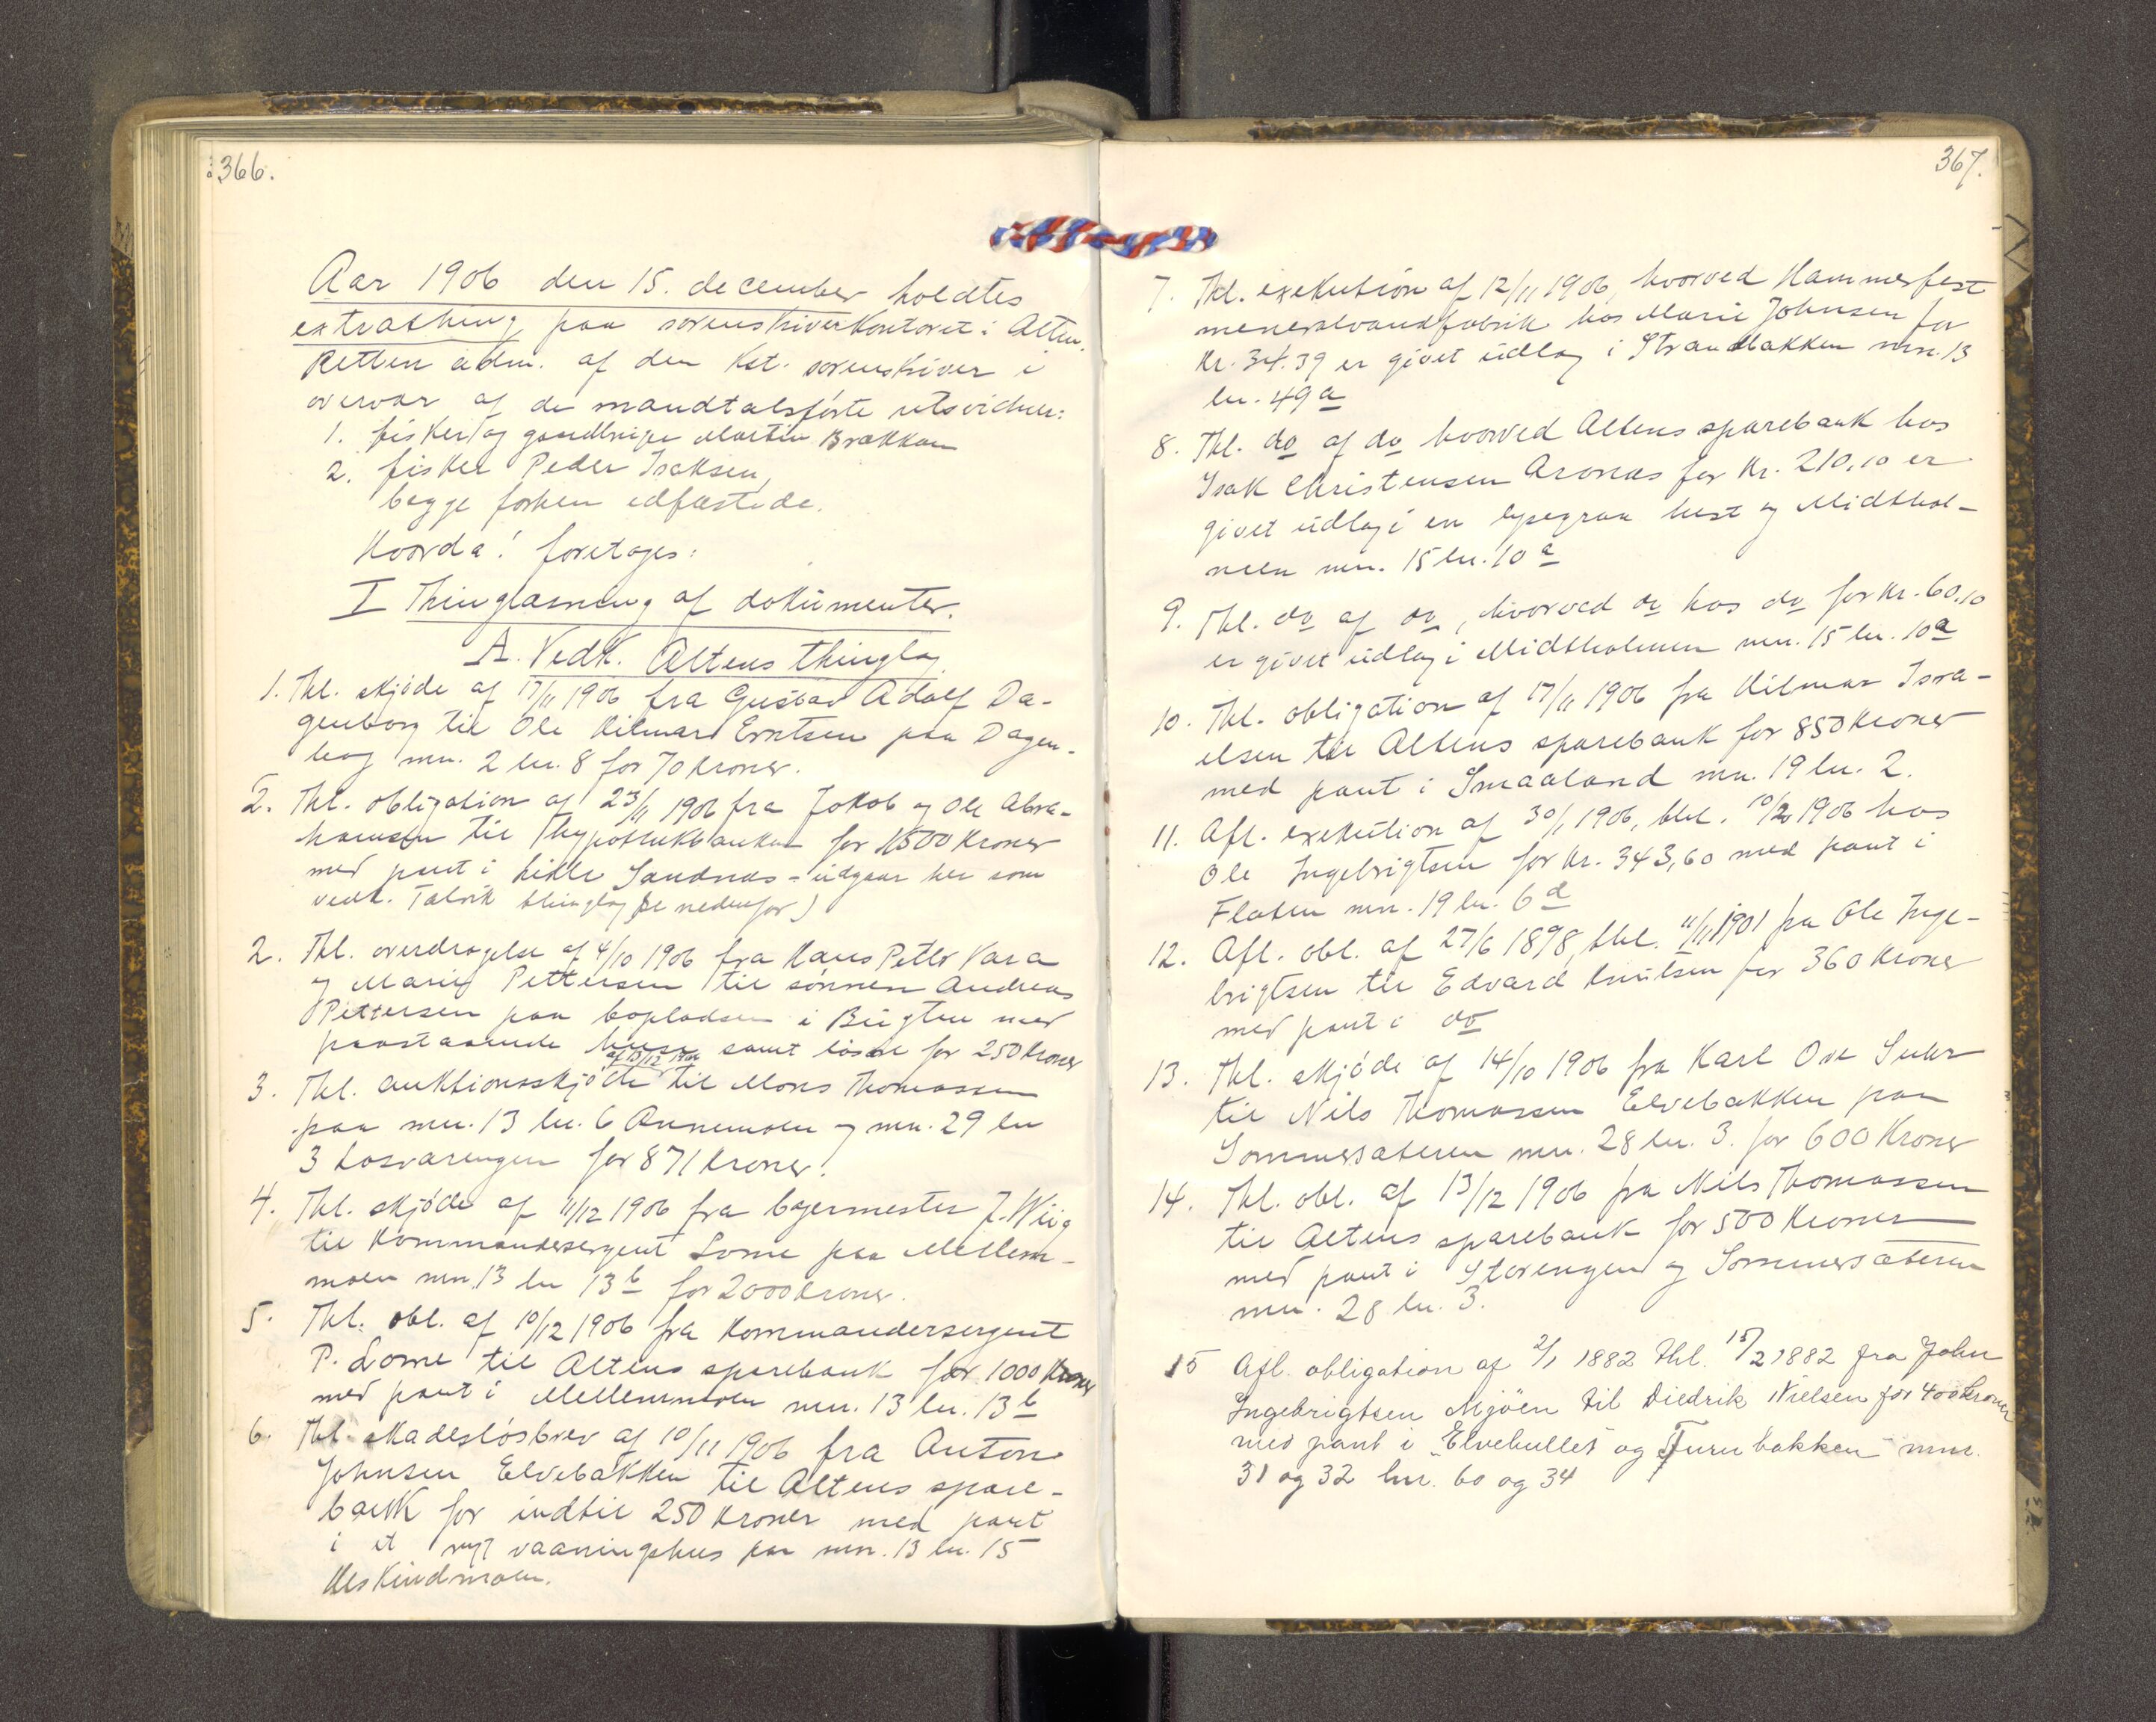 366.
Aar 1906 den 15. december holdtes
extrathing paa sorenskriverkontoret i Alten.
Retten adm. af den kst. sorenskriver i
overvær af de mandtalsførte retsvidner:
1. fisker og gaardbruger Morten Brækkan
2. fisker Peder Isaksen,
begge forhen edfæstede.
Hvorda! foretoges:
I Thinglæsning af dokumenter.
A. Vedk. Altens thinglag
1. Thl. skjøde af 17/11 1906 fra Gustav Adolf Da-
genborg til Ole Hilmar Erntsen paa Dagen-
haug mn. 2 ln. 8 for 70 kroner.
2. Thl. obligation af 23/11 1906 fra Jakob og Ole Abra-
hamsen til Hypothekbanken for 1500 kroner
med pant i Lille Sandnæs - udgaar her som
vedk. Talvik thinglag (se nedenfor)
2. Thl. overdragelse af 4/10 1906 fra Hans Petter Vara
og Marie Pettersen til sønnen Andreas
Pettersen paa bopladsen i Bugten med
paastaaende huse samt løsøre for 250 kroner
3. Thl. auktionsskjøde af 13/12 1906 til Mons Thomassen
paa mn. 13 ln. 6 Annemoen og mn. 29 ln
3 Losvarengen for 871 kroner.
4. Thl. skjøde af 11/12 1906 fra bygermester J. Wiig
til Kommandersergent Lome paa Mellem-
moen mn. 13 ln 13 b for 2000 kroner.
5. Thl. obl. af 10/12 1906 fra Kommandersergent
P. Lome til Altens sparebank for 1000 kroner
med pant i Mellemmoen mn. 13 ln. 13 b
6. Thl. skadesløsbrev af 10/11 1906 fra Anton
Johnsen Elvebakken til Altens spare-
bank for indtil 250 kroner med pant
i et nyt vaaningshus paa mn. 13 ln. 15
367.
7. Thl. exekution af 12/11 1906, hvorved Hammerfest
meneralvandfabrik hos Marie Johnsen for
Kr. 34.39 er givet udlæg i Strandbakken mn. 13
ln. 49 a
8. Thl. do af do hvorved Altens sparebank hos
Isak Christensen Aronæs for Kr. 210,10 er
givet udlæg i en lysegraa hest og Midthol-
meen mn. 15 ln. 10 a
9. Thl. do af do, hvorved do hos do for Kr. 60,10
er givet udlæg i Midtholmen mn. 15 ln. 10 a
10. Thl. obligation af 17/11 1906 fra Hilmar Isra-
elsen til Altens sparebank for 850 kroner
med pant i Smaaland mn. 19 ln. 2.
11. Afl. exekution af 30/1 1906, thl. 10/2 1906 hos
Ole Ingebrigtsen for Kr. 343,60 med pant i
Flaten mn. 19 ln. 6 d
12. Afl. obl. af 27/6 1898, thl. 11/11 1901 fra Ole Inge-
brigtsen til Edvard Knutsen for 360 kroner
med pant i do
13. Thl. skjøde af 14/10 1906 fra Karl Ove Suhr
til Nils Thomassen Elvebakken paa
Sommersæteren mn. 28 ln. 3. for 600 Kroner
14. Thl. obl. af 13/12 1906 fra Nils Thomassen
til Altens sparebank for 500 Kroner
med pant i Storengen og Sommersæteren
mn. 28 ln. 3.
15 Afl. obligation af 2/1 1882 thl. 15/2 1882 fra John
Ingebrigtsen Mjøen til Diedrik Nielsen for 400 kroner
med pant i "Elvehullet" og Furubakken mnr.
31 og 32 lnr. 60 og 34